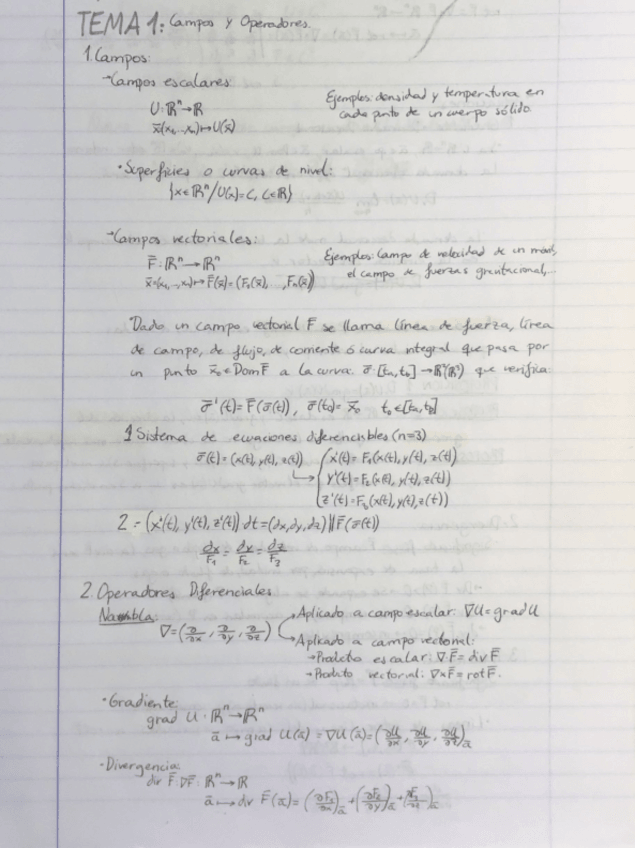 TEMA 1: Campos y Operadores.
1. Campos:
→Campos escalares:
U: ℝⁿ→ℝ
x̄(x₁,...,xₙ)↦U(x̄)
Ejemplos: densidad y temperatura en
cada punto de un cuerpo sólido.
· Superficies o curvas de nivel:
{x∈ℝⁿ/U(x)=C, C∈ℝ}
→Campos vectoriales:
F̄: ℝⁿ→ℝⁿ
x̄=(x₁,...,xₙ)↦F̄(x̄)=(F₁(x̄), ,Fₙ(x̄))
Ejemplos: Campo de velocidad de un móvil,
el campo de fuerzas gravitacional,...
Dado un campo vectorial F se llama línea de fuerza, línea
de campo, de flujo, de corriente ó curva integral que pasa por
un punto x̄₀∈Dom F̄ a la curva: σ̄: [ta,tb]→ℝⁿ(ℝⁿ) que verifica:
σ̄'(t)=F̄(σ̄(t)), σ̄(t₀)=x̄₀ t₀∈[ta,tb]
1 Sistema de ecuaciones diferenciables (n=3)
σ̄(t)=(x(t),y(t),z(t)) → { x'(t)=F₁(x(t),y(t),z(t))
y'(t)=F₂(x(t),y(t),z(t))
z'(t)=F₃(x(t),y(t),z(t))
2.- (x'(t), y'(t), z'(t)) dt=(dx,dy,dz)∥F̄(σ̄(t))
dx/F₁ = dy/F₂ = dz/F₃
2. Operadores Diferenciales
Nambla:
∇=(∂/∂x, ∂/∂y, ∂/∂z)
→Aplicado a campo escalar: ∇U=grad U
→Aplicado a campo vectorial:
→Producto escalar: ∇F̄=div F̄
→Producto vectorial: ∇×F̄=rot F̄.
· Gradiente:
grad U: ℝⁿ→ℝⁿ
ā ↦ grad U(ā) = ∇U(ā)=(∂U/∂x, ∂U/∂y, ∂U/∂z)ā
· Divergencia:
div F̄: ∇F̄: ℝⁿ→ℝ
ā ↦ div F̄(ā)=(∂F₁/∂x)ā+(∂F₂/∂y)ā+(∂F₃/∂z)ā